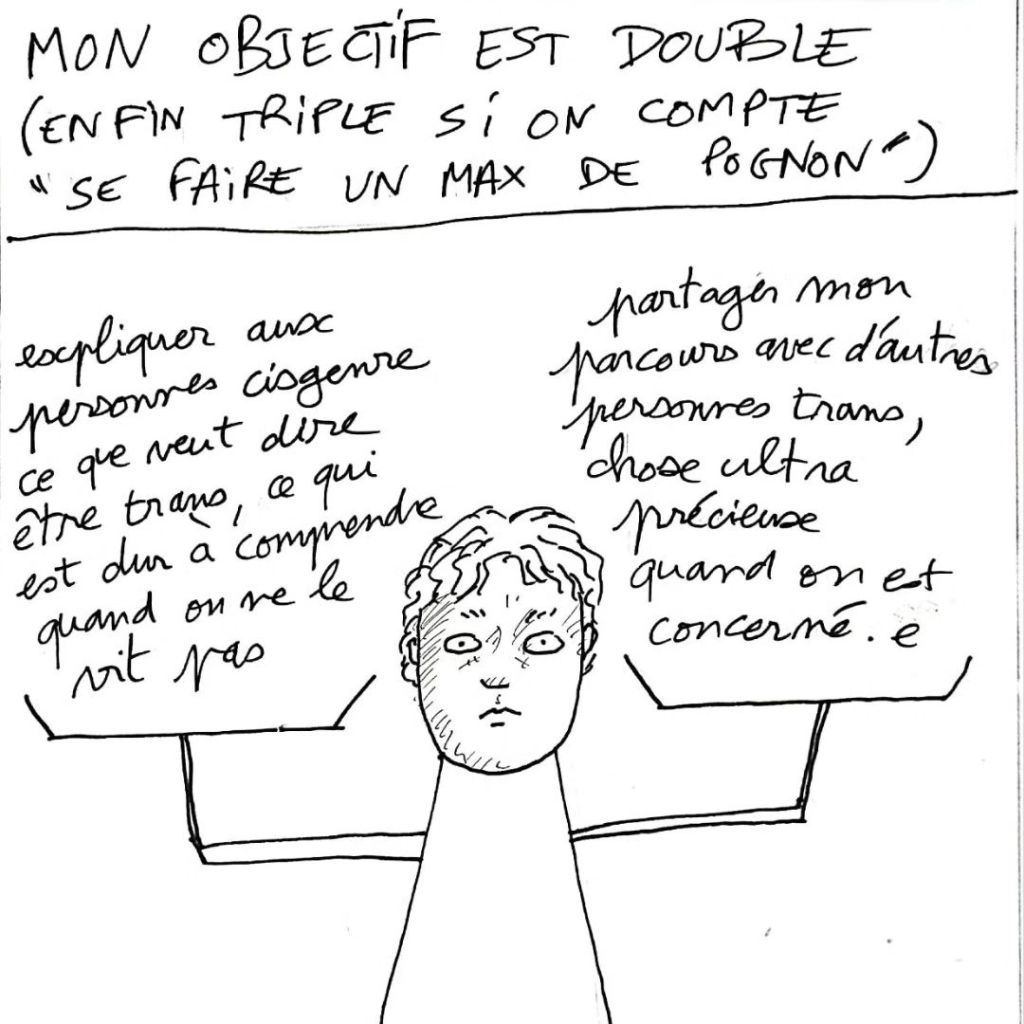 MON OBJECTIF EST DOUBLE
(ENFIN TRIPLE SI ON COMPTE
"SE FAIRE UN MAX DE POGNON")
expliquer aux
personnes cisgenre
ce que veut dire
être trans, ce qui
est dur à comprendre
quand on ne le
vit pas
partager mon
parcours avec d'autres
personnes trans,
chose ultra
précieuse
quand on est
concerné.e